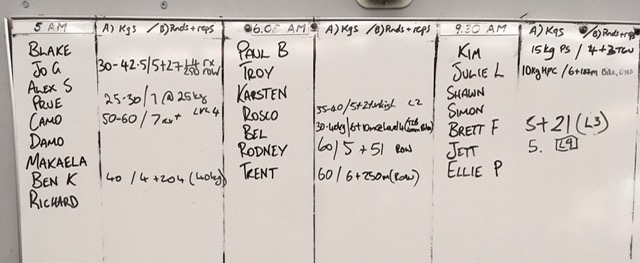 5 AM A) Kgs / B) Rnds + reps
BLAKE
JO G 30-42.5/5+27+L4 rx
250 row
ALEX S
PRUE 25-30/7 @ 25kg
CAMO 50-60/7 rx+ LVL 4
DAMO
MAKAELA
BEN K 40/4+204 (40kg)
RICHARD
6.05 AM A) Kgs / B) Rnds + reps
PAUL B
TROY
KARSTEN
ROSCO 35-40/5+2 L2
BEL 30-40kg/6+10
RODNEY 60/5+51 ROW
TRENT 60/6+250m (ROW)
9.30 AM A) Kgs / B) Rnds + reps
KIM 15kg PS / 4+
JULIE L 10kg HPC / 6+ Bike,
SHAWN
SIMON
BRETT F 5+21 (L3)
JETT 5. L9
ELLIE P